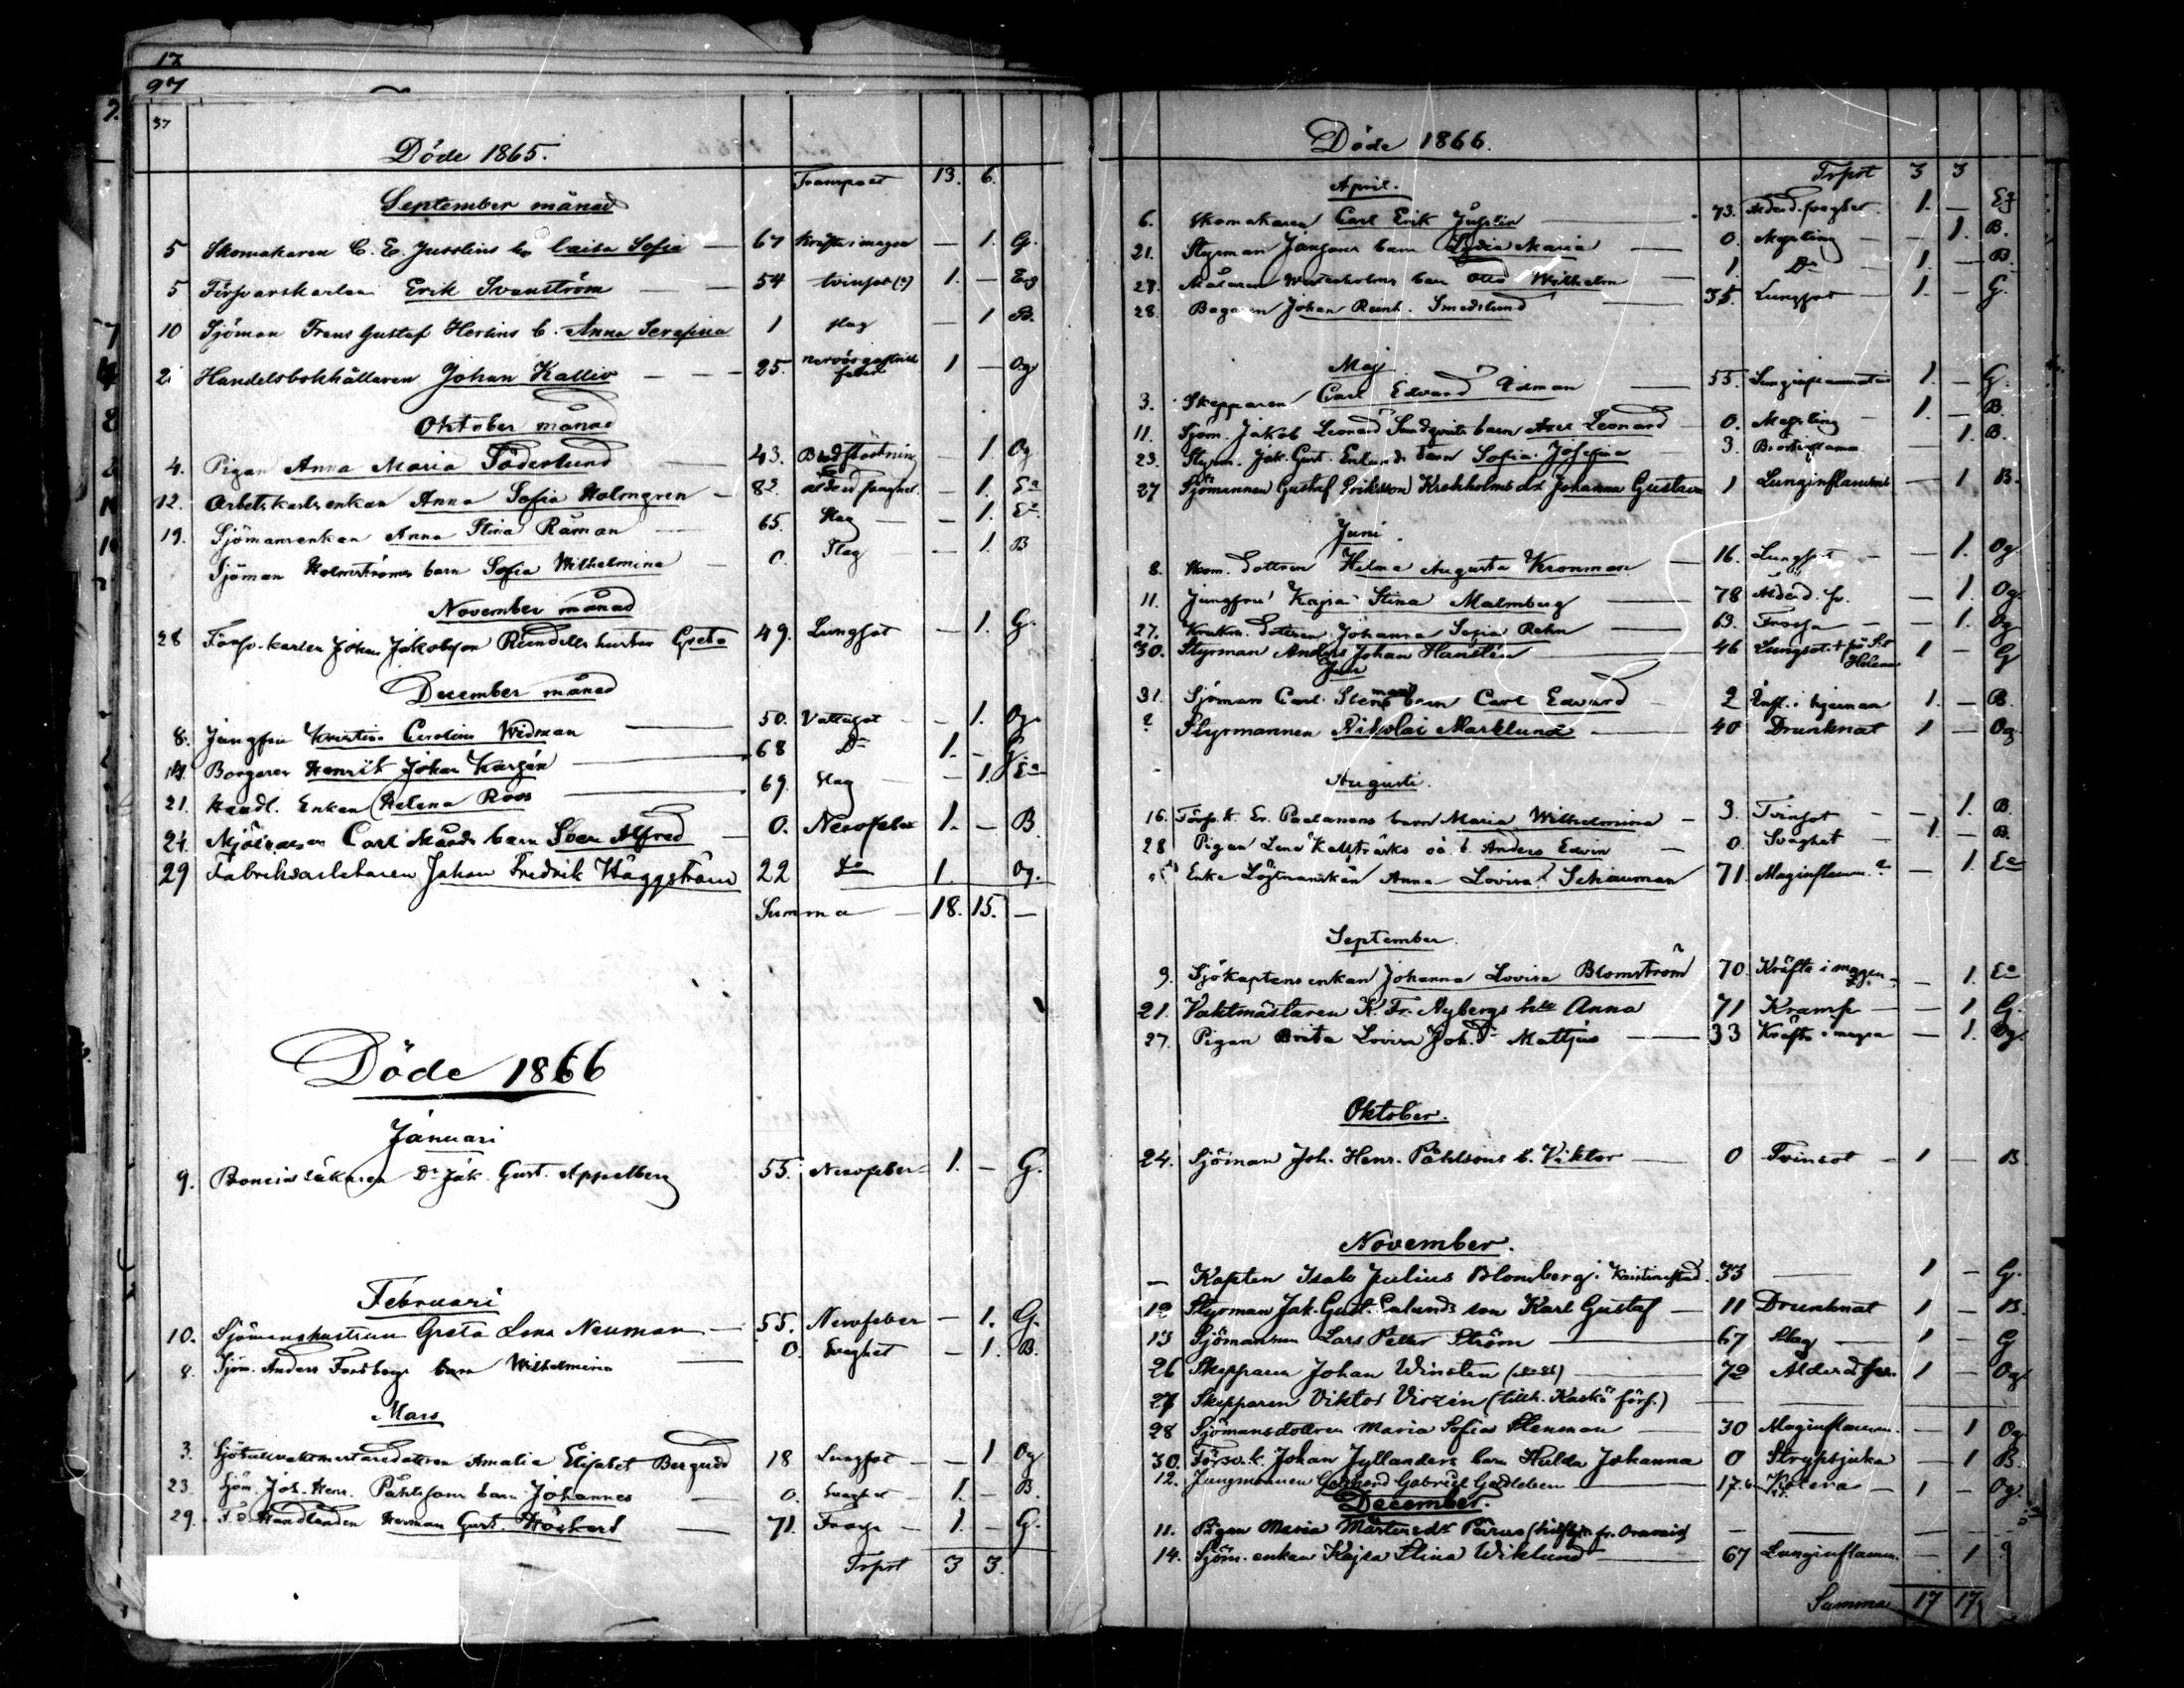 17
97
37
Döde 1865.
Transport 13. 6.
September månad
5 Skomakaren C. E. Jusslins h. Caisa Sofia — 67 Kräfta i magen — 1. G.
5 Försvarskarlen Erik Svanström — 54 tvinsot (?) 1. — Eg
10 Sjöman Frans Gustaf Herlins b. Anna Serafina 1 slag — 1 B.
21 Handelsbokhållaren Johan Kallio — 25. nervös gastrisk feber 1 — Og
Oktober månad
4. Pigan Anna Maria Söderlund — 43. Blodstörtning — 1 Og
12. Arbetskarlsenkan Anna Sofia Holmgren — 82 — 1. Ea
19. Sjömansenkan Anna Stina Råman — 65. Slag — 1. Ea
Sjöman Holmströms barn Sofia Wilhelmina — 0. Slag — 1. B
November månad
28 Försv. karlen Johan Jakobsson Rundells hustru Greta 49. Lungsot — 1. G.
December månad
8. Jungfru Kristina Carolina Widman — 50. Vattusot — 1. Og.
14. Borgaren Henrik Johan — 68 Do 1. — G.
21. Handl. Enkan Helena Roos — 69. Slag — 1. Ea
24. Carl barn Sven Alfred — 0. Nervfeber 1. — B
29 Fabriksarbetaren Johan Fredrik Häggström 22 Do 1. Og.
Summa — 18. 15. —
Döde 1866
Januari
9. Dr Jak. Gust. Appelberg 55. Nervfeber 1. — G.
Februari
10. Sjömanshustrun Greta Lena Neuman — 55. Nervfeber — 1. G.
8. Sjöm. Anders Forsbergs barn Wilhelmina — 0. Svaghet — 1. B.
Mars
3. Amalia Elisabet Bergudd 18 Lungsot — 1 Og
23. Sjöm. Joh. Henr. Påhlssons barn Johannes — 0. Svaghet — 1. — B.
29. F.d. Handlanden Herman Gust. Höckert — 71. Frossa — 1. — G.
Trpst 3 3.
Döde 1866.
Trpst 3 3
April.
6. Skomakaren Carl Erik Jusslin — 73. Ålderd. svaghet. 1. — Eg
21. Styrman Jansons barn Lydia Maria — 0. Messling — 1. B.
27. Målaren barn Otto Wilhelm — 1. Do — 1. — B.
28. Bagaren Johan Reinh. Smedslund — 35. Lungsot — 1. — G.
Maj
3. Skepparen Carl Edvard Edman — 55. Lunginflammation 1. — G.
11. Sjöm. Jakob Leonard Sundqvists barn Axel Leonard — 0. Messling — 1. — B.
23. Styrm. Jak. Gust. Enlunds barn Sofia Josefina — 3. — 1. B.
27 Sjömannen Gustaf Eriksson Krokholms dr Johanna Gustava 1 Lunginflamm. — 1 B.
Juni.
8. Skom. dottren Hilma Augusta Kronman — 16. Lungsot — 1. Og.
11. Jungfru Kajsa Stina Malmberg — 78 Ålderd. sv. — 1. Og.
27. dottren Johanna Sofia Rehn — 63. Frossa — 1. Og
30. Styrman Anders Johan Hansten — 46 Lungsot. † på S:t Helena 1 — G
31. Sjöman Carl Stenmans barn Carl Edvard — 2 Infl. i hjernan 1. — B.
? Styrmannen Nikolai Marklund — 40 Drunknat 1 — Og
Augusti.
16. Försv. k. Er. Paulanens barn Maria Wilhelmina — 3. Tvinsot — 1. B.
28 Pigan Lena Kallträsks oä. b. Anders Edvin — 0. Svaghet — 1. — B.
Enke Löjtnantskan Anna Lovisa Schauman 71. Maginflamm. ? — 1. Ea
September.
9. Sjökaptensenkan Johanna Lovisa Blomström 70. Kräfta i magen — 1. Ea
21. Vaktmästaren K. Fr. Nybergs hu Anna 71 Kramp — 1 G.
27. Pigan Brita Lovisa Joh. dr Mattjus — 33 Kräfta i magen — 1. Og.
Oktober.
24. Sjöman Joh. Henr. Påhlsons b. Viktor — 0 Tvinsot — 1 — B
November.
— Kapten Isak Julius Blomberg i Kristinestad. 33 — 1 — G.
12 Styrman Jak. Gust. Enlunds son Karl Gustaf — 11 Drunknat 1 — B.
13 Sjömannen Lars Petter Ström — 67 Slag — 1 — G
26 Skepparen Johan Winsten — 72 Ålderd. sv. 1 — Og.
27 Skepparen Viktor Virzén (tillh. Kaskö förs.) —
28 Sjömansdottren Maria Sofia Stenman — 30 Maginflamm. — 1 Og
30. Försv. k. Johan Jyllanders barn Hulda Johanna 0 Strypsjuka — 1 B.
12. Jungmannen Gabriel Gadleben — 17. Kolera — 1 — Og.
December.
11. Pigan Maria Mårtensdr fr. Oravais) — — —
14. Sjöm. enkan Kajsa Stina Wiklund — 67 Lunginflamm. — 1 ?
Summa 17 17